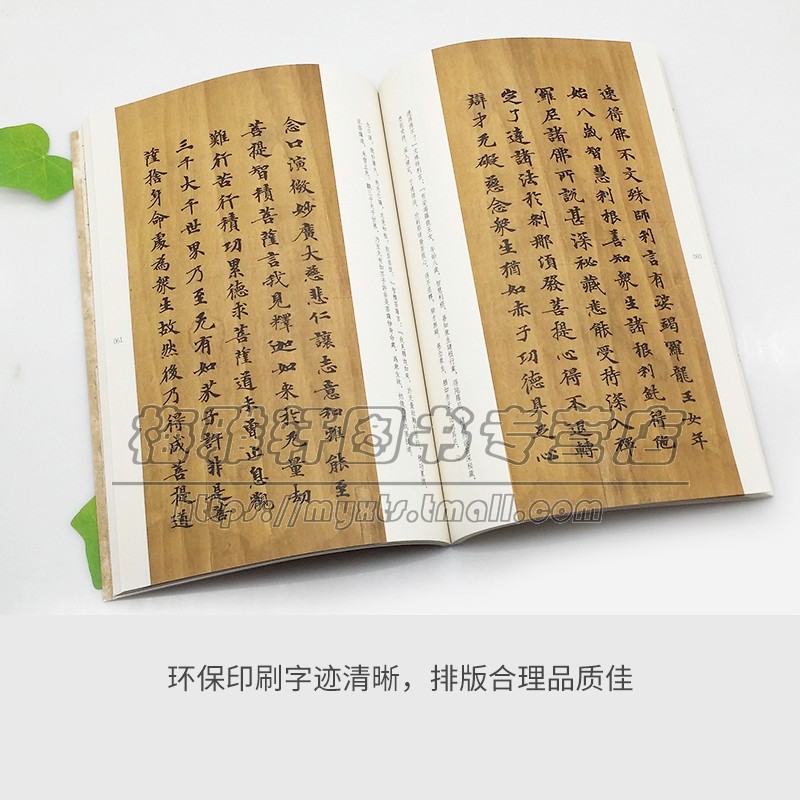 速得佛不文殊師利言有娑竭羅龍王女年
始八歲智慧利根善知衆生諸根利鈍得陁
羅尼諸佛所說甚深秘藏悉能受持深入禪
定了達諸法於刹那頃發菩提心得不退轉
辯才无礙慈念衆生猶如赤子功德具足心
念口演微妙廣大慈悲仁讓志意和雅能至
菩提智積菩薩言我見釋迦如来於无量劫
難行苦行積功累德求菩薩道未曾止息觀
三千大千世界乃至无有如芥子許非是菩
薩捨身命處為衆生故然後乃得成菩提道
061
梅雅轩图书专营店
https://myxts.tmall.com
环保印刷字迹清晰，排版合理品质佳